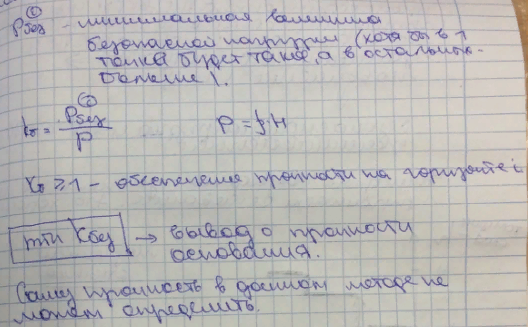 ①
Pбез - минимальная величина
безопасной нагрузки (хотя бы в 1
точке будет такая, а в остальных -
больше).
②
kб = Pбез / P
P = γ·H
Kб ≥ 1 - обеспечения прочности на горизонте i
min Kбез → вывод о прочности
основания.
Саму прочность в данном методе не
может определить.